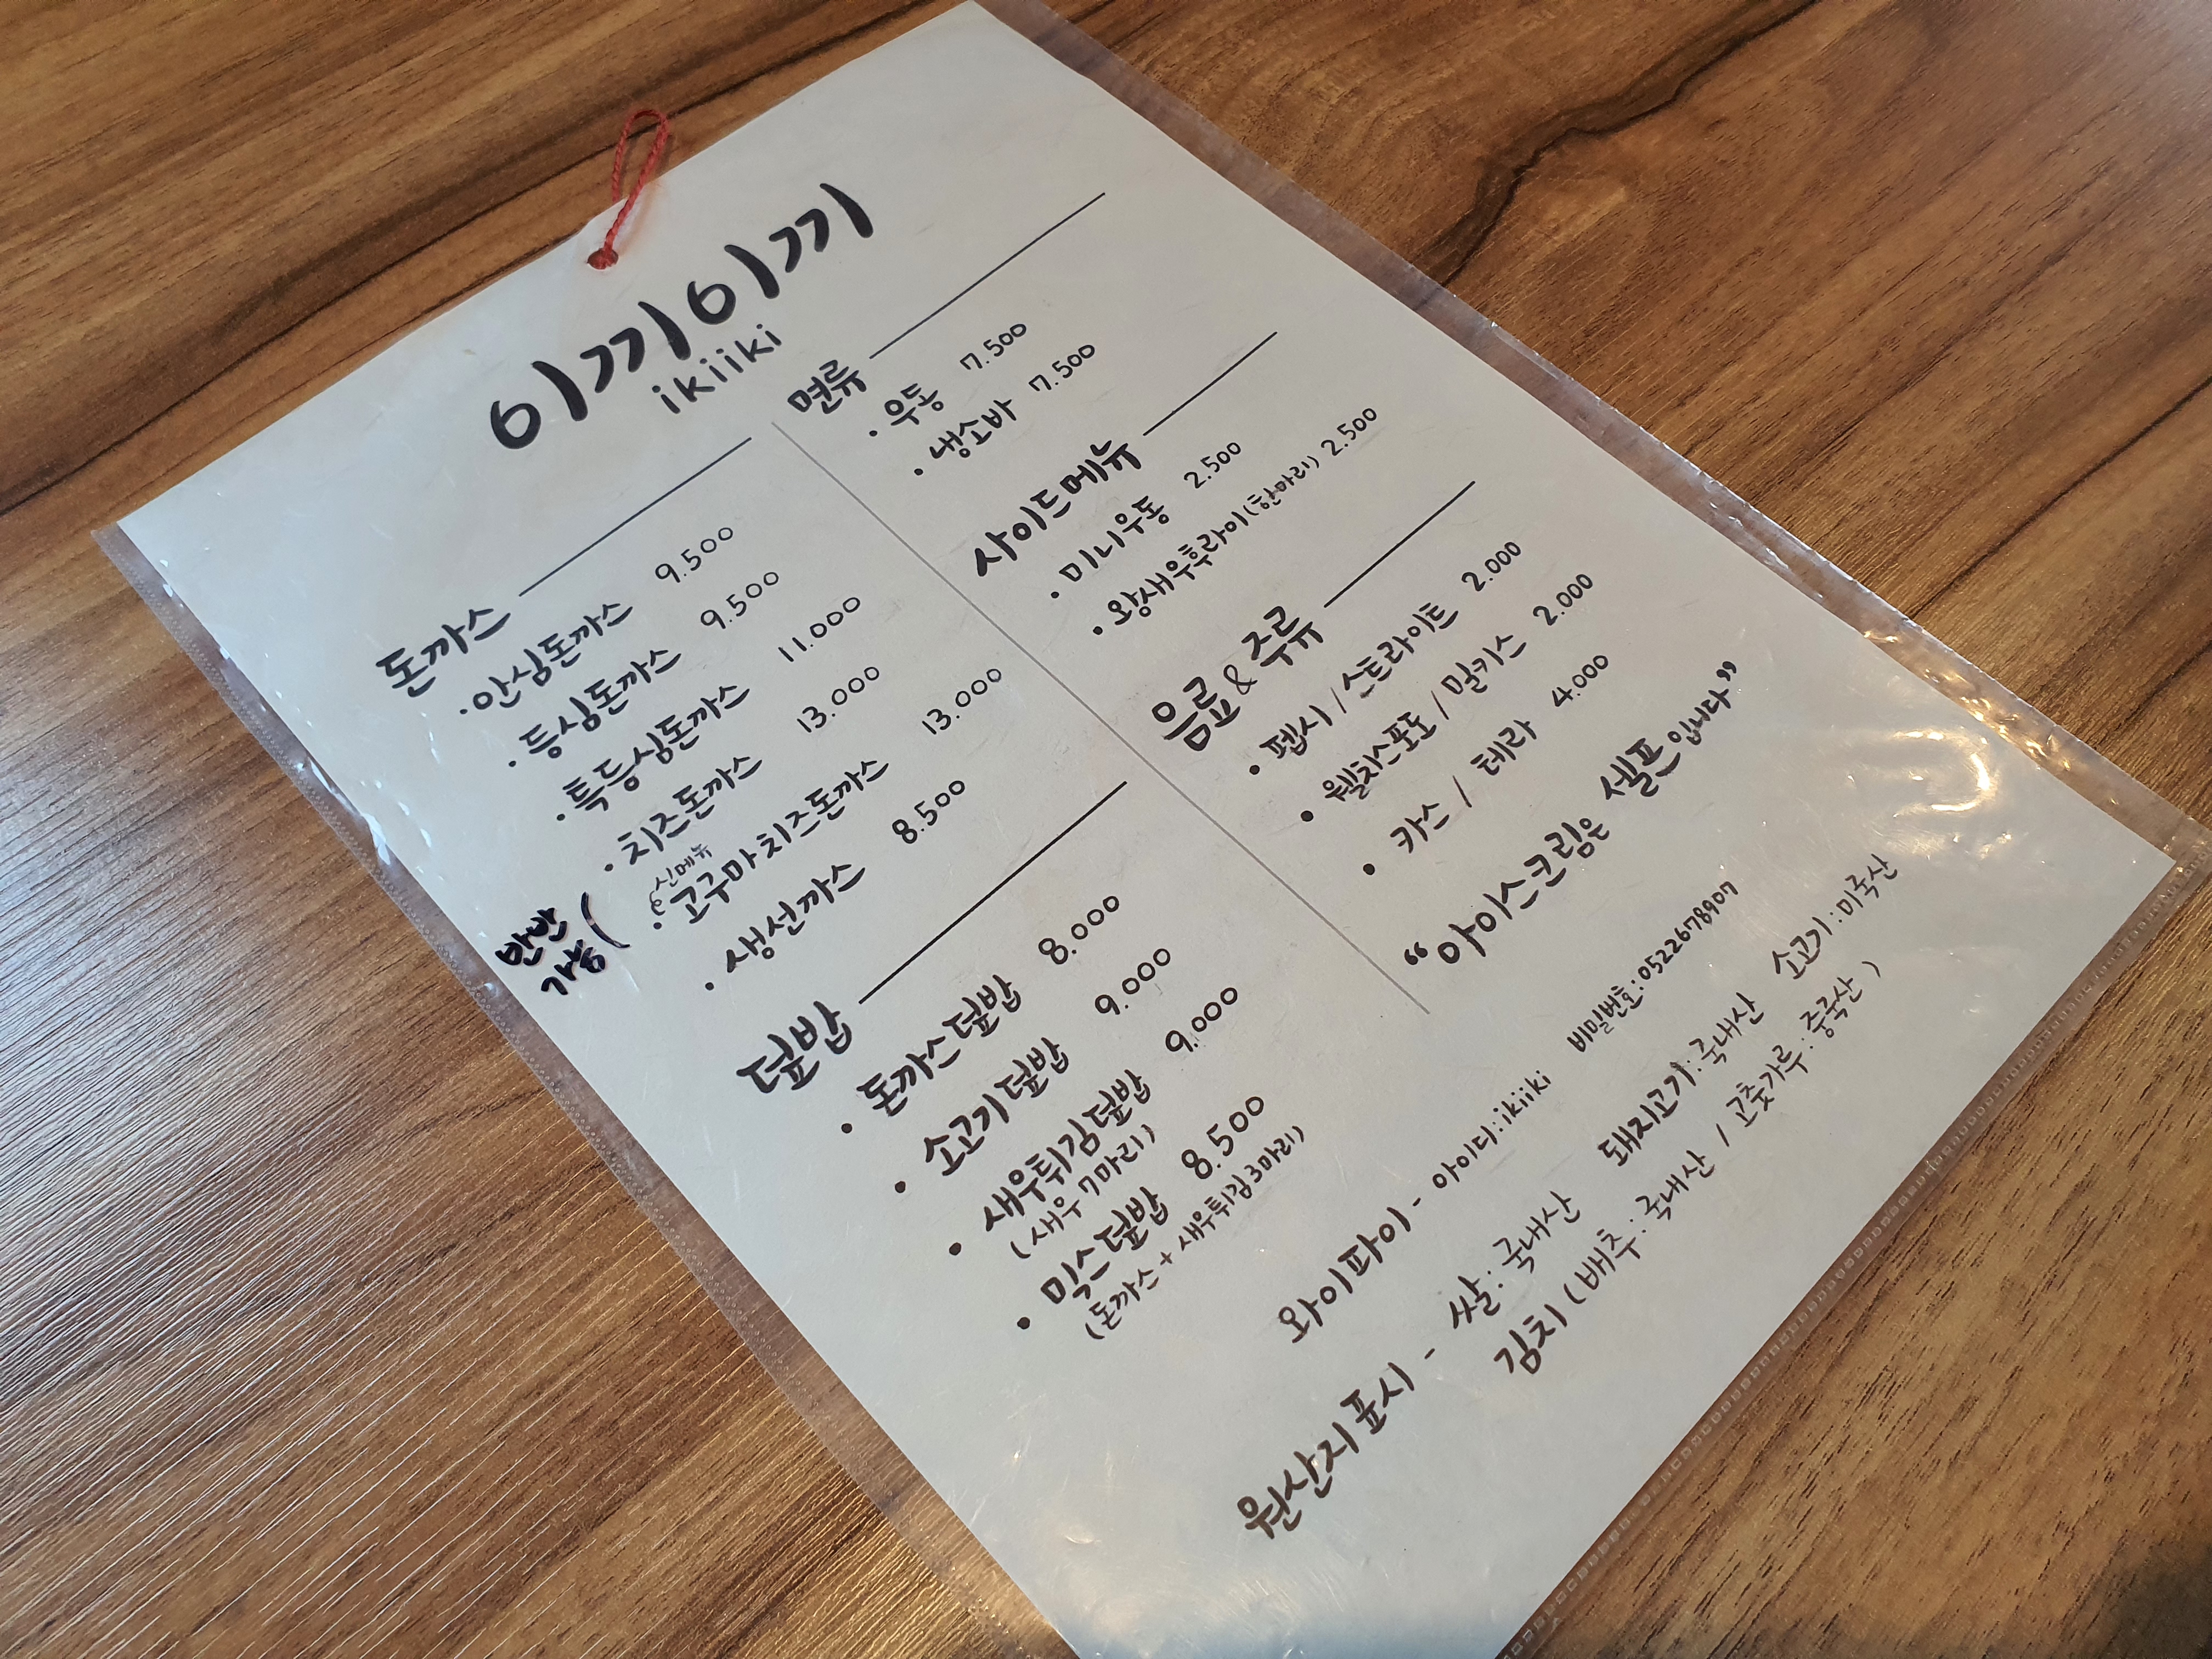 이끼이끼
ikiiki
돈까스
· 안심돈까스 9.500
· 등심돈까스 9.500
· 특등심돈까스 11.000
· 치즈돈까스 13.000
신메뉴
· 고구마치즈돈까스 13.000
반반
가능
· 생선까스 8.500
덮밥
· 돈까스덮밥 8.000
· 소고기덮밥 9.000
· 새우튀김덮밥 9.000
(새우 7마리)
· 믹스덮밥 8.500
(돈까스 + 새우튀김 3마리)
면류
· 우동 7.500
· 냉소바 7.500
사이드메뉴
· 미니우동 2.500
· 왕새우후라이(한마리) 2.500
음료 & 주류
· 펩시 / 스트라이트 2.000
· 웰치스포도 / 밀키스 2.000
· 카스 / 테라 4.000
“아이스크림은 셀프입니다”
와이파이 - 아이디: ikiiki 비밀번호: 0522678907
원산지표시 - 쌀: 국내산 돼지고기: 국내산 소고기: 미국산
김치 (배추: 국내산 / 고춧가루: 중국산)